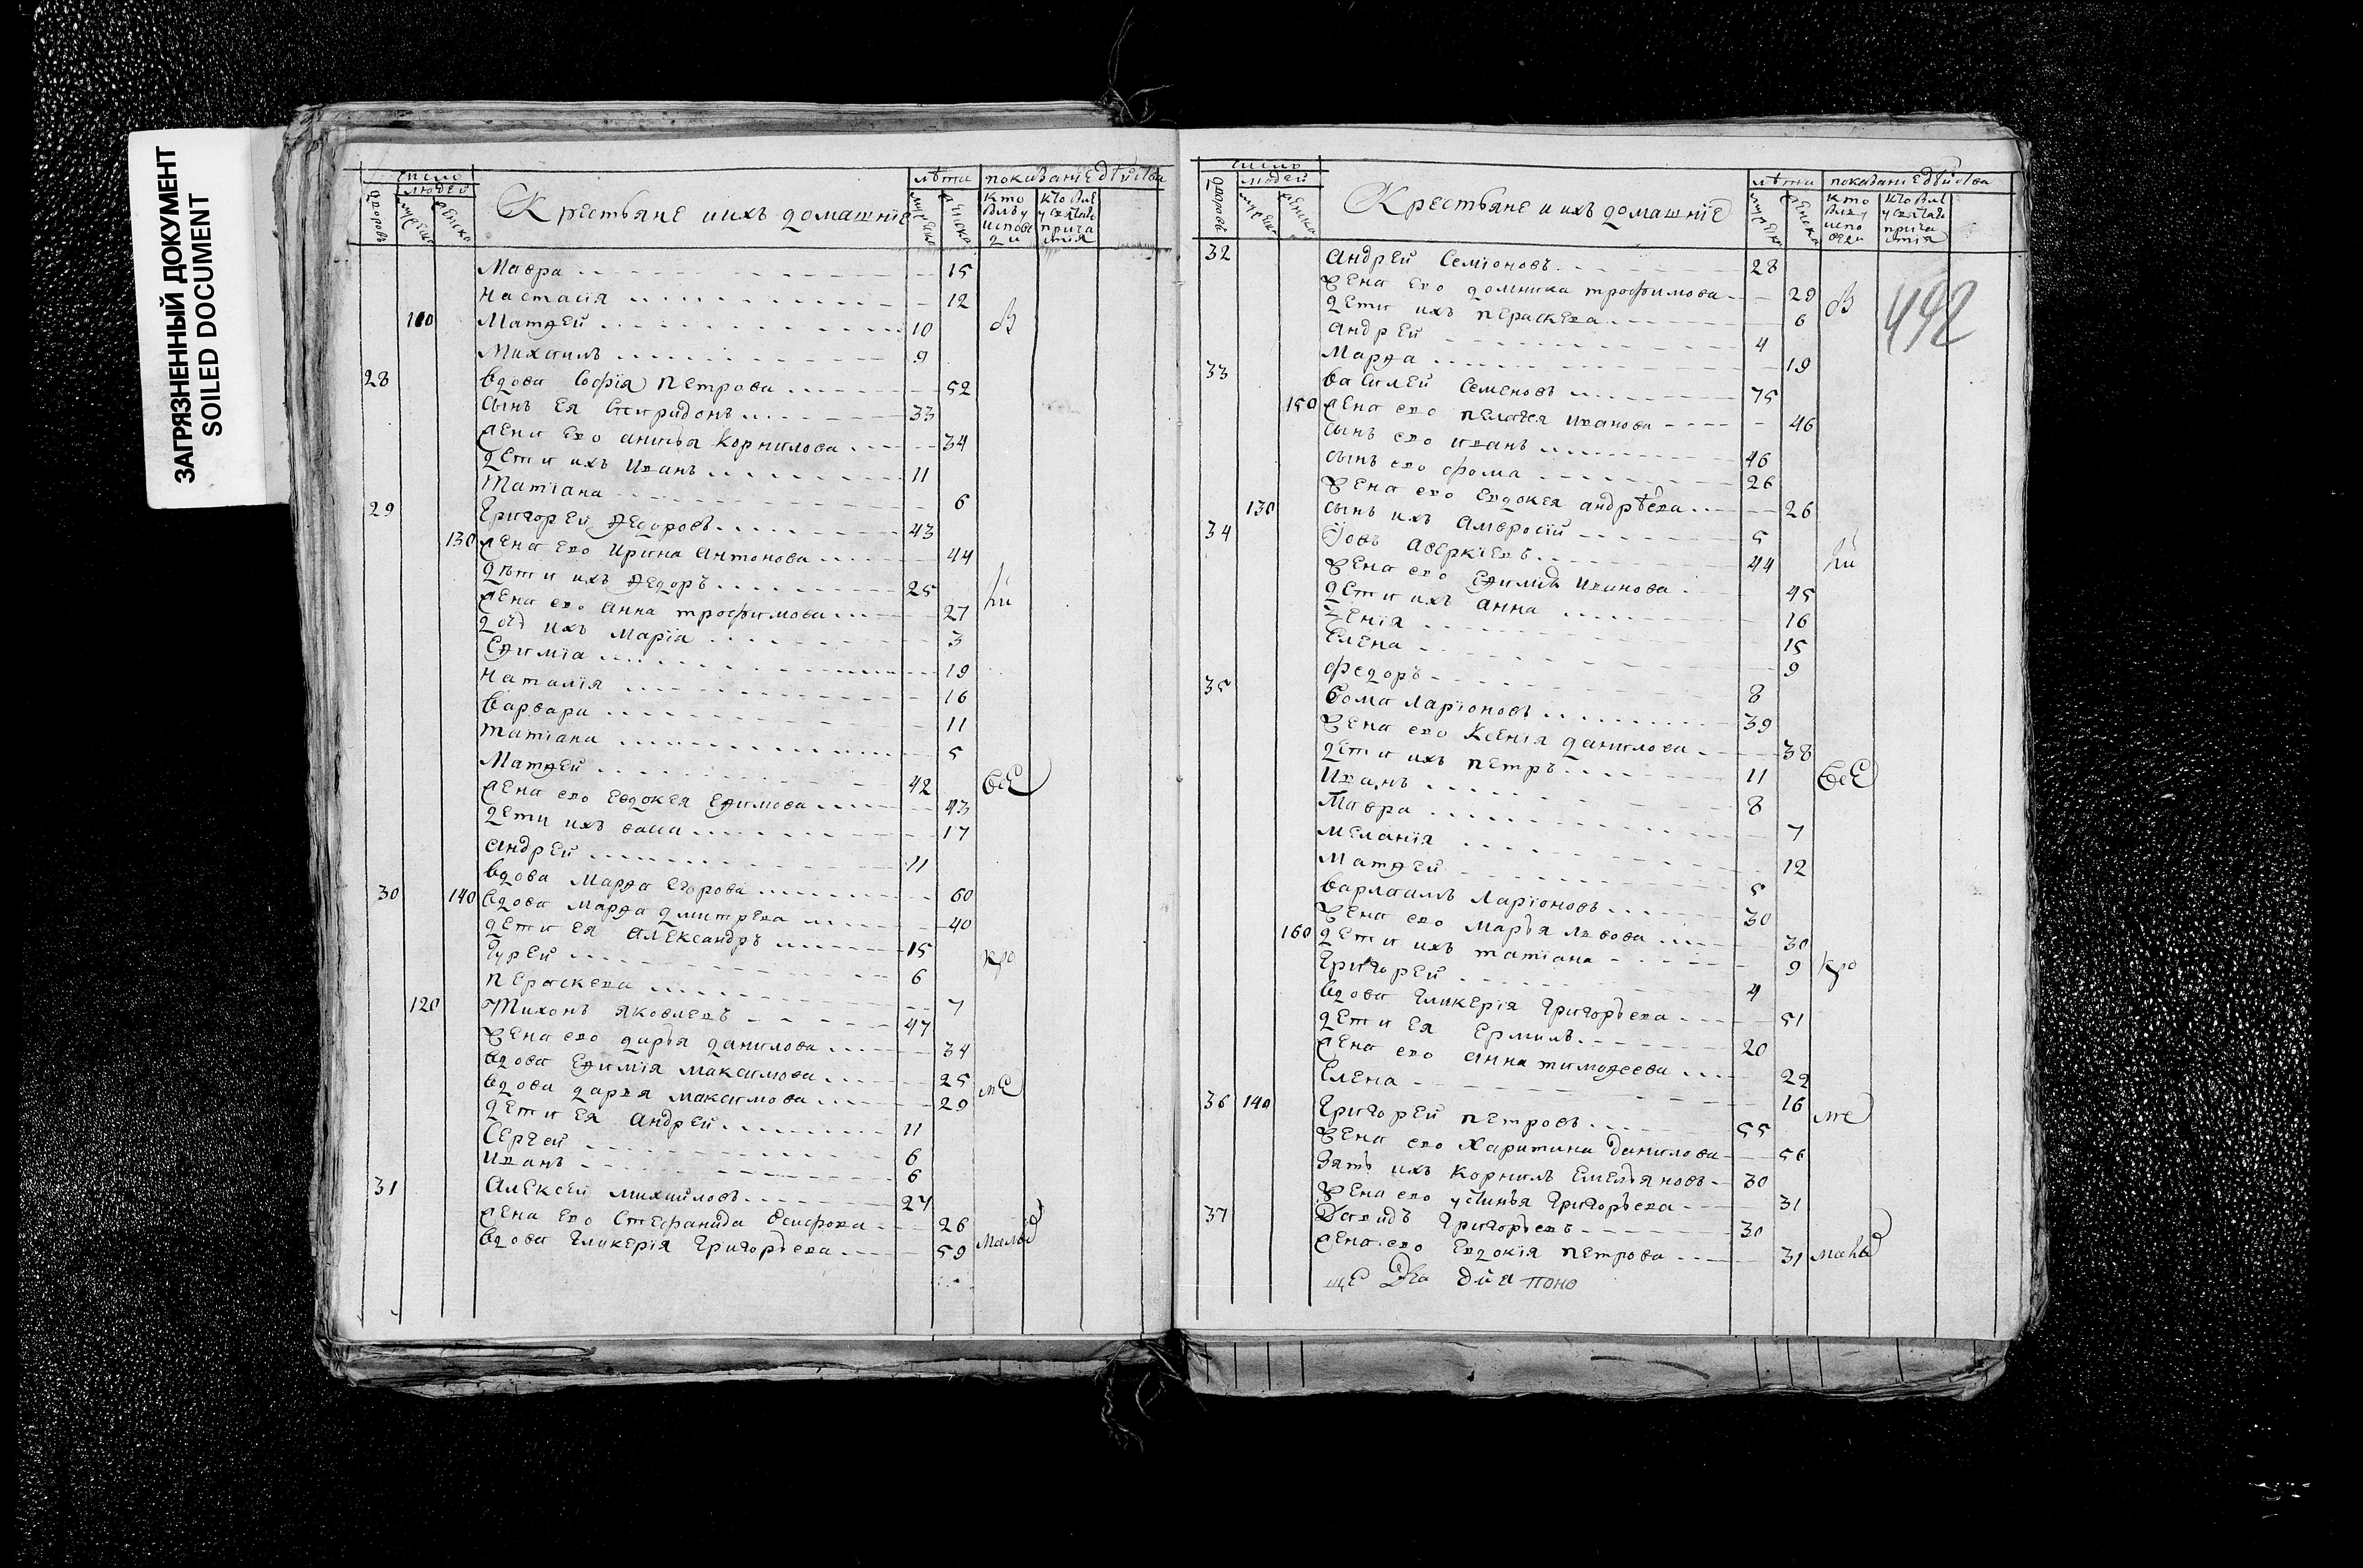 ЗАГРЯЗНЕННЫЙ ДОКУМЕНТ
SOILED DOCUMENT
число
людей
Крестьяне и ихъ домашнїе
лѣта
показанїе дѣйства
Мавра 15
Настасїя 12
110 Матѳей 10
Михаилъ 9
28 Вдова Софїя Петрова 52
Сынъ ея Спиридонъ 33
Жена его Анисья Корнилова 34
Дети ихъ Иванъ 11
Татїана 6
29 Григорей Ѳедоровъ 43
130 Жена его Ирина Антонова 44
Дѣти ихъ Ѳедоръ 25
Жена его Анна Трофимова 27
Дочь ихъ Марїа 3
Еѳимїа 19
Наталїя 16
Варвара 11
Татїана 5
Матѳей 42
Жена его Евдокея Еѳимова 43
Дети ихъ 17
Андрей 11
Вдова Марѳа Егорова 60
30 140 Вдова Марѳа Дмитрева 40
Дети ея Александръ 15
Гурей 6
Пераскева 7
120 Тихонъ Яковлевъ 47
Жена его Дарья Данилова 34
Вдова Еѳимїя Максимова 25
Вдова Дарья Максимова 29
Дети ея Андрей 11
Сергей 6
Иванъ 6
31 Алексей Михайловъ 27
Жена его Стефанида Осифова 26
Вдова Гликерїя Григорьева 59
число
людей
Крестьяне и ихъ домашнїе
лѣта
показанїе дѣйства
492
32 Андрей Семїоновъ 28
Жена его Домника Трофимова 29
Дети ихъ Пераскева 6
Андрей 4
Марѳа 19
33 Василей Семеновъ 75
150 Жена его Пелагея Иванова 46
Сынъ его Иванъ 46
Сынъ его Фома 26
Жена его Евдокея Андрѣева 26
130 Сынъ ихъ Амвросїй 5
34 Їовъ Аверкїевъ 44
Жена его Еѳимїя Иванова 45
Дети ихъ Анна 16
Зенїя 15
Елена 9
Федоръ 8
35 Фома Ларїоновъ 39
Жена его Ксенїя Данилова 38
Дети ихъ Петръ 11
Иванъ 8
Мавра 7
Меланїя 12
Матѳей 5
Варлаамъ Ларїоновъ 30
Жена его Марья Львова 30
160 Дети ихъ Татїана 9
Григорей 4
Вдова Гликерїя Григорьева 51
Дети ея Ермилъ 20
Жена его Анна Тимоѳеева 22
Елена 16
36 140 Григорей Петровъ 55
Жена его Харитина Данилова 56
Зять ихъ Корнилъ Емельяновъ 30
Жена его Устинья Григорьева 31
37 Давидъ Григорьевъ 30
Жена его Евдокїя Петрова 31